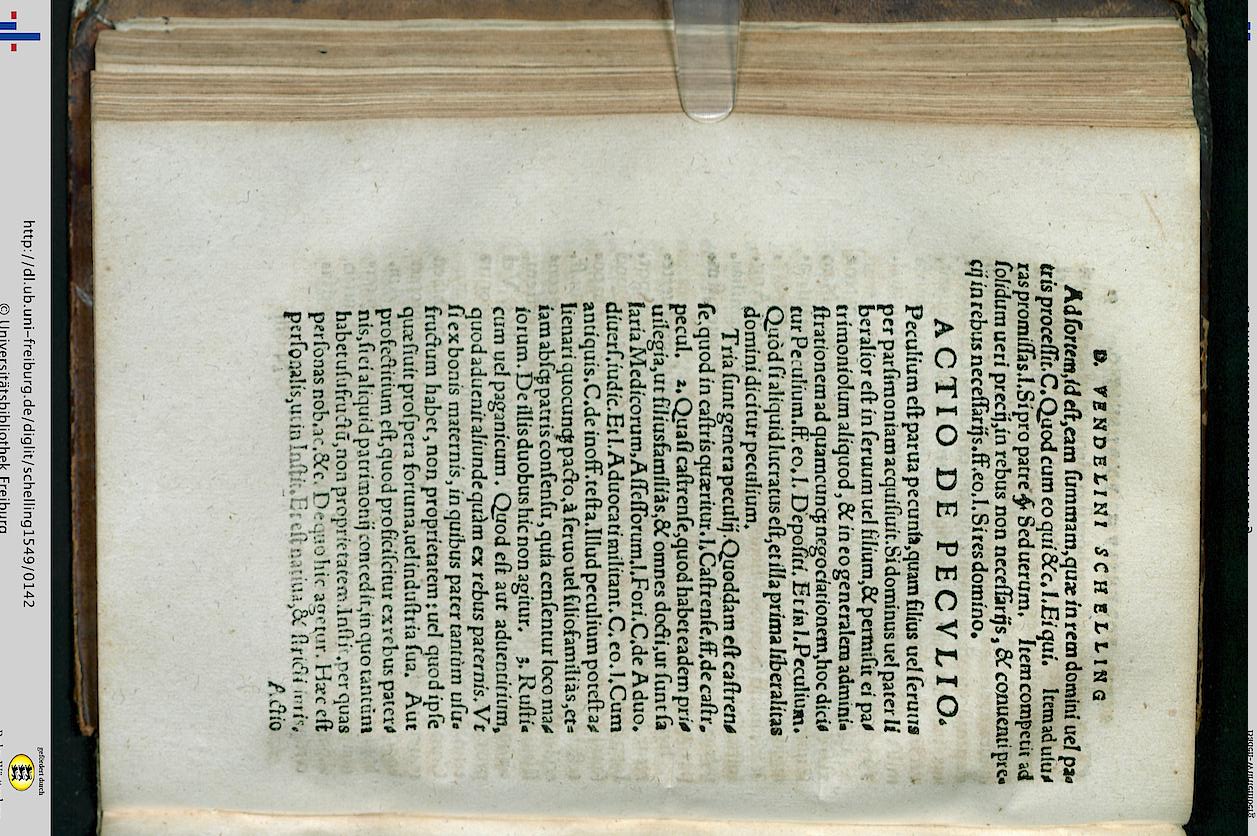 D. VENDELINI SCHELLING
Ad sortem, id est, eam summam, quæ in rem domini uel pa=
tris processit. C. Quod cum eo qui &c. l. Et qui. Item ad usu=
ras promissas. l. Si pro patre §. Sed uerum. Item competit ad
solidum ueri precij, in rebus non necessarijs, & conuenti pre=
cij in rebus necessarijs. ff. eo. l. Si res domino.
ACTIO DE PECVLIO.
Peculium est parua pecunia, quam filius uel seruus
per parsimoniam acquisiuit. Si dominus uel pater li
beralior est in seruum uel filium, & permisit ei pa=
trimoniolum aliquod, & in eo generalem admini=
strationem ad quamcunq; negociationem, hoc dici=
tur Peculium. ff. eo. l. Depositi. Et in l. Peculium.
Quòd si aliquid lucratus est, et illa prima liberalitas
domini dicitur peculium.
Tria sunt genera peculij. Quoddam est castren=
se, quod in castris quæritur. l. Castrense. ff. de castr.
pecul. 2. Quasi castrense, quod habet eadem pri=
uilegia, ut filiusfamiliâs, & omnes docti, ut sunt sa
laria Medicorum, Assessorum. l. Fori. C. de Aduo.
diuers. iudic. Et l. Aduocati militant. C. eo. l. Cum
antiquis. C. de inoff. testa. Illud peculium potest a=
lienari quocunq; pacto, à seruo uel filiofamiliâs, et=
iam absq; patris consensu, quia censentur loco ma=
iorum. De illis duobus hic non agitur. 3. Rusti=
cum uel paganicum. Quod est aut aduentitium,
quod aduenit aliunde quàm ex rebus paternis. Vt
si ex bonis maternis, in quibus pater tantùm usu=
fructum habet, non proprietatem: uel quod ipse
quæsiuit prospera fortuna, uel industria sua. Aut
profectitium est, quod proficiscitur ex rebus pater=
nis, si ei aliquid patrimonij concedit, in quo tantùm
habet usufructū, non proprietatem. Instit. per quas
personas nob. ac. &c. De quo hic agetur. Hæc est
personalis, ut in Instit. Et est natiua, & stricti iuris.
Actio
http://dl.ub.uni-freiburg.de/diglit/schelling1549/0142
© Universitätsbibliothek Freiburg
gefördert durch